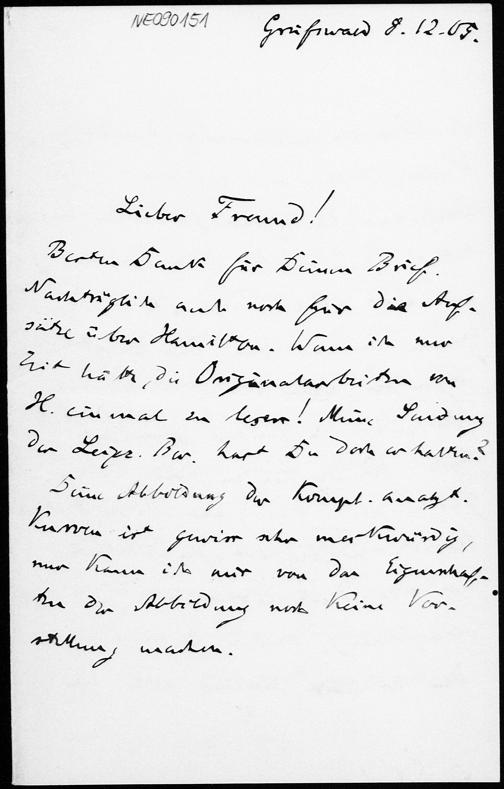 NE090151
Greifswald 8.12.05.
Lieber Freund!
Besten Dank für Deinen Brief.
Nachträglich auch noch für die Auf-
sätze über Hamilton. Wenn ich nur
Zeit hätte, die Originalarbeiten von
H. einmal zu lesen! Meine Sendung
der Leipz. Ber. hast Du doch erhalten?
Deine Abbildung der kompl. analyt.
Kurven ist gewiss sehr merkwürdig,
nur kann ich mir von den Eigenschaf-
ten der Abbildung noch keine Vor-
stellung machen.